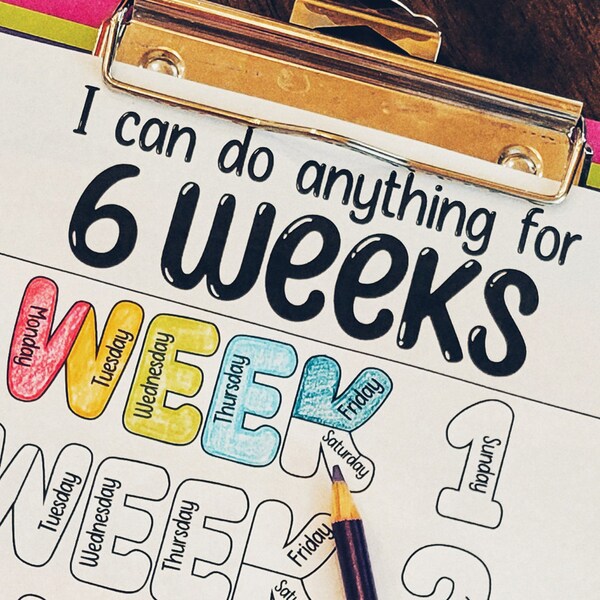 I can do anything for
6 WEEKS
WEEK 1
Monday
Tuesday
Wednesday
Thursday
Friday
Saturday
Sunday
WEEK 2
Tuesday
Wednesday
Thursday
Friday